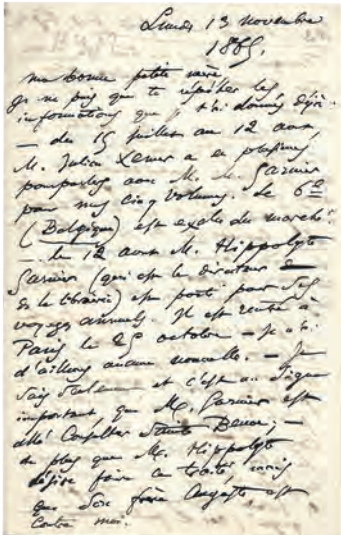 Lundi 13 novembre
1865.
ma bonne petite mère
Je ne puis que te répéter les
informations que je t'ai données déjà.
— du 15 juillet au 12 aout,
M. Julien Lemer a eu plusieurs
pourparlers avec M. M. Garnier
pour mes cinq volumes. Le 6e
(Belgique) est exclu du marché.
— le 12 aout M. Hippolyte
Garnier (qui est le directeur
de la librairie) est parti pour ses
voyages annuels. Il est rentré à
Paris le octobre — Je n'ai
d'ailleurs aucune nouvelle. — Je
sais seulement et c'est un signe
important, que M. Garnier est
allé consulter Sainte Beuve; —
de plus que M. Hippolyte
désire faire ce traité, mais
que son frère Auguste, est
contre moi.